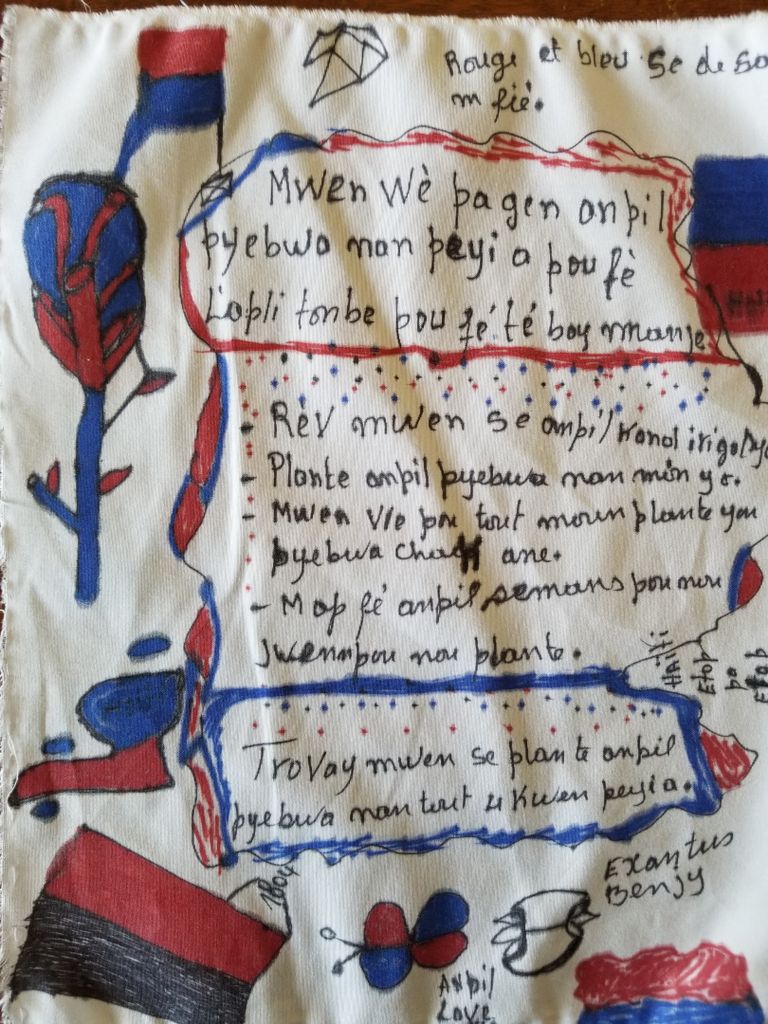 Rouge et bleu se de
m fiè.
Mwen Wè pa gen anpil
pyebwa nan peyi a pou fè
Lapli tonbe pou fé té bay manje
- Rèv mwen se anpil kanal
- Plante anpil pyebwa nan mòn yo.
- Mwen vle pou tout moun plante you
pyebwa chak ane.
- M ap fé anpil semans pou nou
Jwenn pou nou plante.
HAITI
Etap
pa
Etap
Trovay mwen se plante anpil
pyebwa nan tout 4 Kwen peyi a.
1804
EXantus
Benjy
Anpil
Love